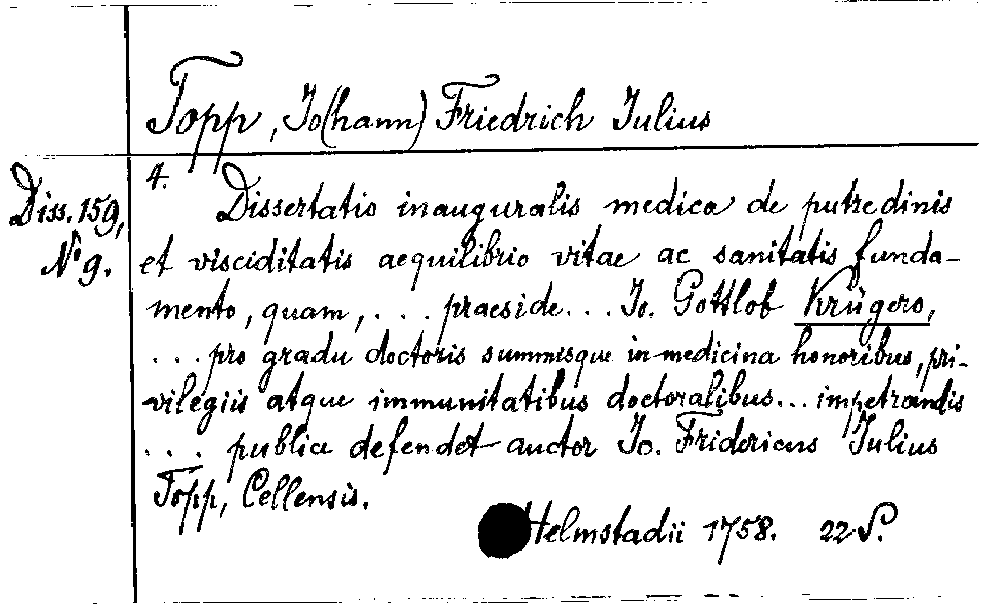 Topp, Jo(hann) Friedrich Julius
Diss. 159,
No 9.
4. Dissertatio inauguralis medica de putredinis
et visciditatis aequilibrio vitae ac sanitatis funda-
mento, quam, ... praeside ... Jo. Gottlob Krügero,
... pro gradu doctoris summisque in medicina honoribus, pri-
vilegiis atque immunitatibus doctoralibus ... impetrandis
... publice defendet auctor Jo. Fridericus Julius
Topp, Cellensis.
Helmstadii 1758. 22 S.